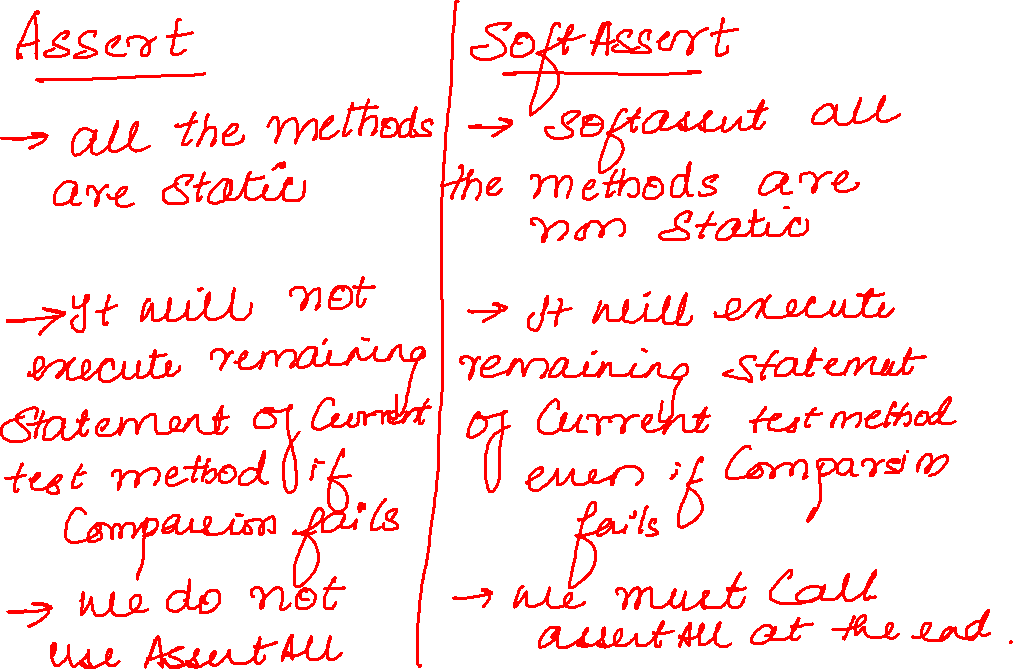 Assert
→ all the methods
are static
→ It will not
execute remaining
Statement of Current
test method if
Comparision fails
→ we do not
use AssertAll
SoftAssert
→ Softassert all
the methods are
non static
→ It will execute
remaining statement
of Current test method
even if Comparsion
fails
→ we must Call
assertAll at the end.